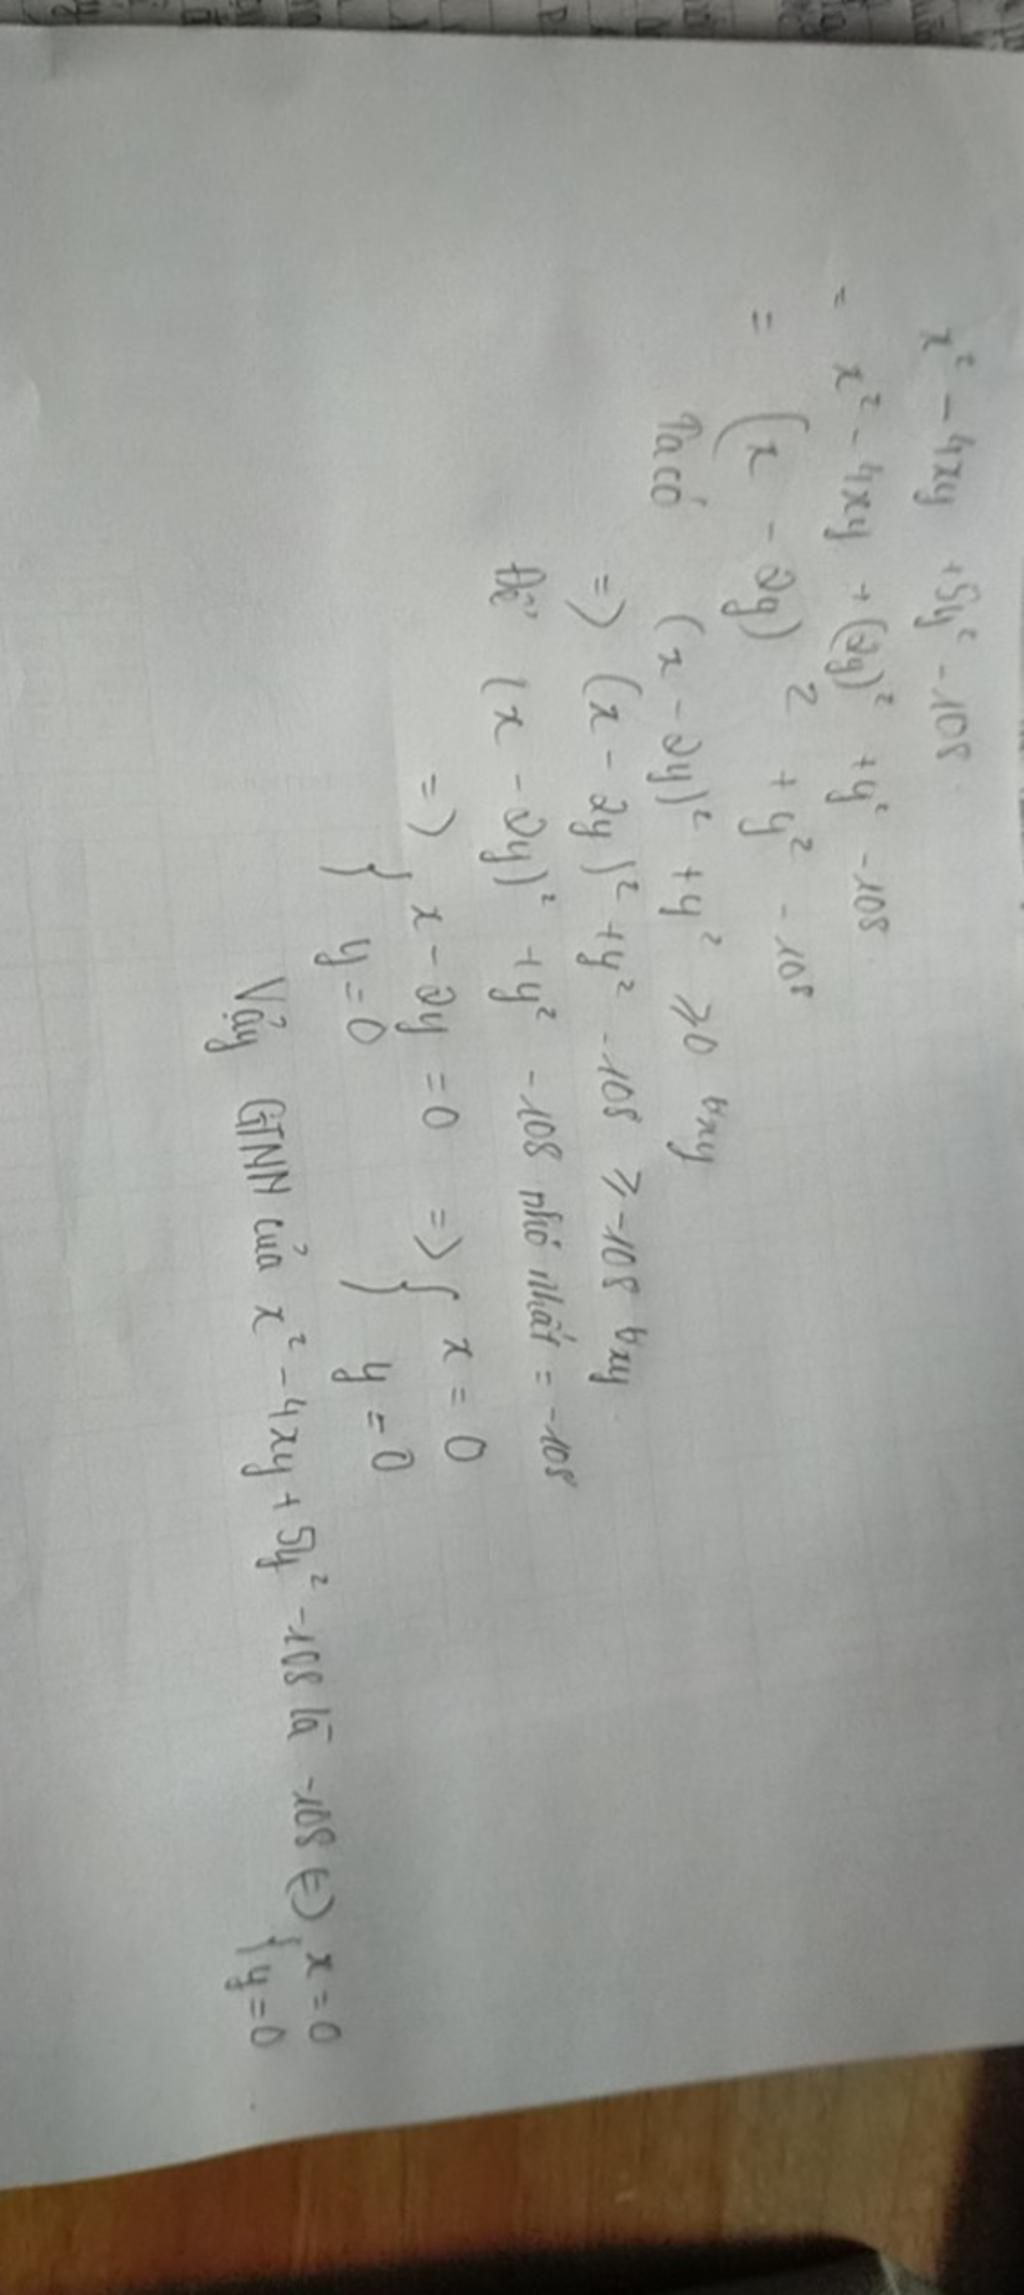 x² - 4xy + 5y² - 108
= x² - 4xy + (2y)² + y² - 108
= (x - 2y)² + y² - 108
Ta có (x - 2y)² + y² ⩾ 0 ∀xy
=> (x - 2y)² + y² - 108 ⩾ -108 ∀xy.
Để (x - 2y)² + y² - 108 nhỏ nhất = -108
=> { x - 2y = 0 => { x = 0
y = 0 y = 0
Vậy GTNN của x² - 4xy + 5y² - 108 là -108 (=) { x = 0
y = 0